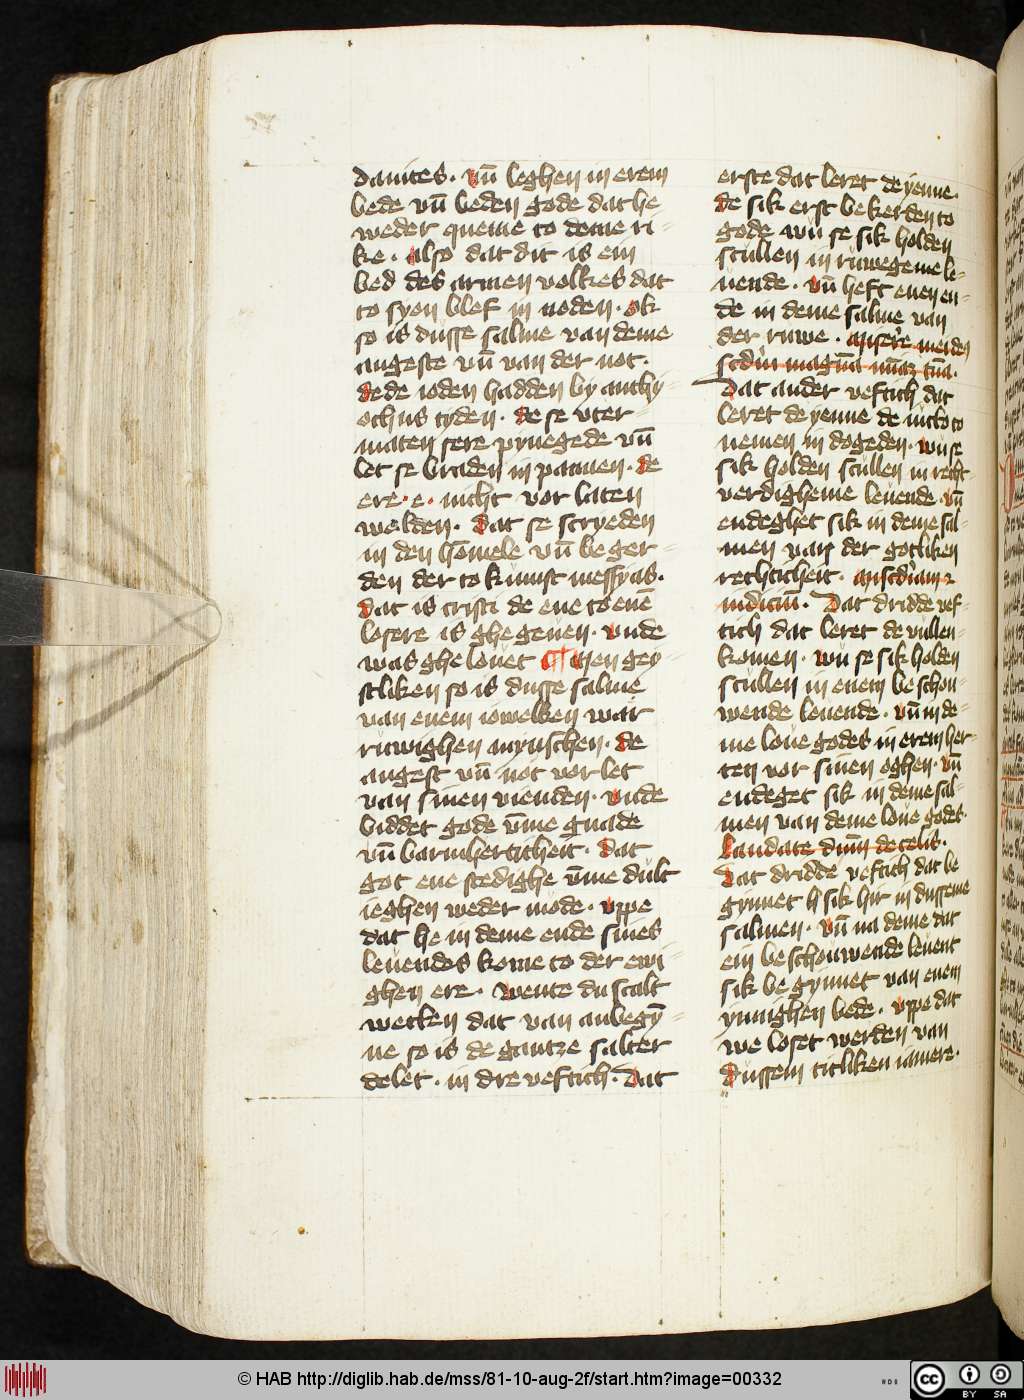 dauites. vn̄ leghen in erem
bede vn̄ beden gode dat he
weder queme to deme ri-
ke. also dat dit is ein
bed des armen volkes dat
to syon blef in noden. ok
so is dusse salme van deme
angeste vn̄ van der not.
dede ioden hadden by anthy-
ochus tyden. de se vter-
maten sere pynegede vn̄
let se braden in pannen. de
ere. e. nicht vor laten
welden. Dat se scryeden
in den hōmele vn̄ be ger-
den der to kumst messyas.
Dat is cristi de ene to enē
losere is ghe geuen. vnde
was ghe louet ¶ Den gey-
stliken so is dusse salme
van enem iowelken war
ruwighen mynschen. de
angest vn̄ not vor let
van sinen vienden. vnde
biddet gode vm̄e gnade
vn̄ barmherticheit. Dat
got ene stedighe vm̄e dult
ieghen weder mode. vppe
dat he in deme ende sines
leuendes kome to der ewi-
ghen ere. Wente du scalt
wetten dat van anbegȳ-
ne so is de gantze salter
delet. in dre veftich. Dat
erste dat leret de yenne.
de sik erst be kerden to
gode wu se sik holden
scullen in ruwegeme le-
uende. vn̄ heft enen en-
de in deme salme van
der ruwe. miserere mei deus
scd'm magnā mīam tuā.
Dat ander veftich dat
leret de yenne de
nemen in dogeden. wu se
sik holden scullen in recht-
verdigheme leuende. vn̄
endeghet sik in deme sal-
men van der gotliken
rechticheit. mīscd'iam ⁊
iudiciū. Dat dridde vef-
tich dat leret de vullen-
komen. wu se sik holden
scullen in enem be schou-
wende leuende. vn̄ in de-
me loue godes in erem her-
ten vor sinen oghen. vn̄
endeget sik in deme sal-
men van deme loue godes.
Laudate dnm̄ de celis.
Dat dridde veftich dat be
gynnet h sik hir in dusseme
salmen. vn̄ na deme dat
ein be schouwende leuent
sik be gynnet van enem
ynnighen bede. vppe dat
we loset werden van
dussem titliken iamere.
© HAB http://diglib.hab.de/mss/81-10-aug-2f/start.htm?image=00332
HDB
cc BY SA